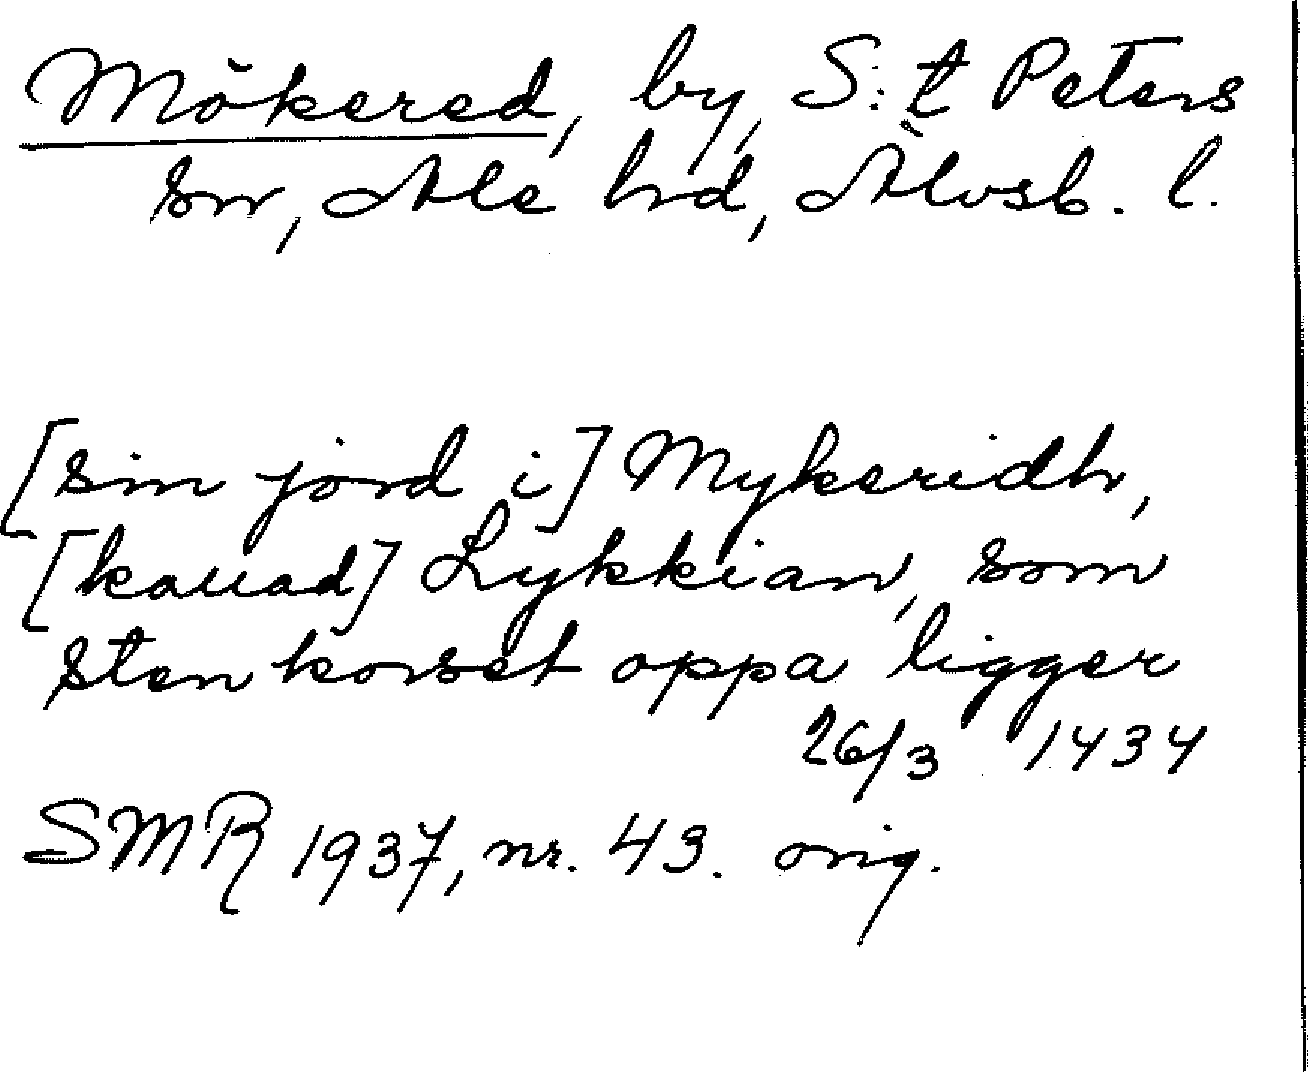 Mökered, by, S:t Peters
sn, Ale hd, Älvsb. l.
[sin jord i] Mykeridh,
[kauad] Lykkian, som
stenkorset oppa ligger
26/3 1434
SMR 1937, nr. 43. orig.